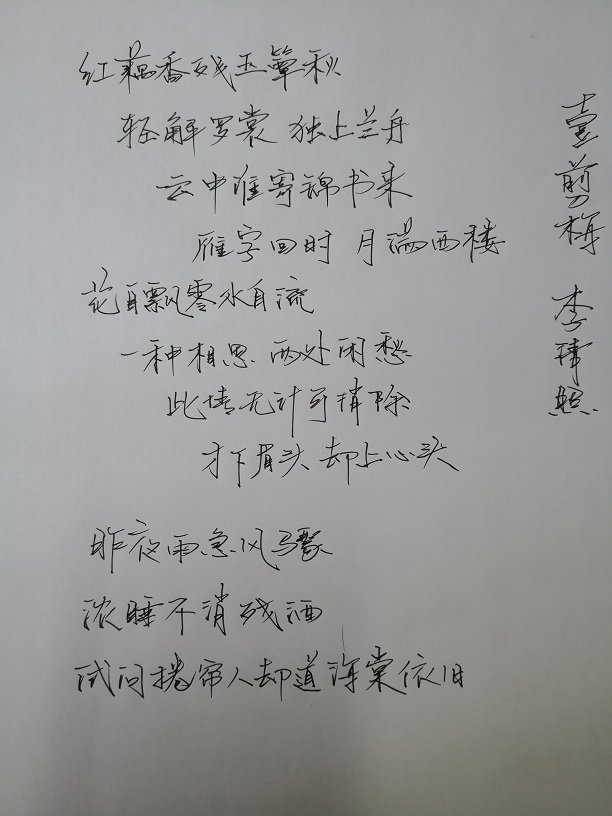 红藕香残玉簟秋
轻解罗裳 独上兰舟
云中谁寄锦书来
雁字回时 月满西楼
花自飘零水自流
一种相思 两处闲愁
此情无计可消除
才下眉头 却上心头
昨夜雨急风骤
浓睡不消残酒
试问捲帘人却道海棠依旧
壹剪梅 李清照